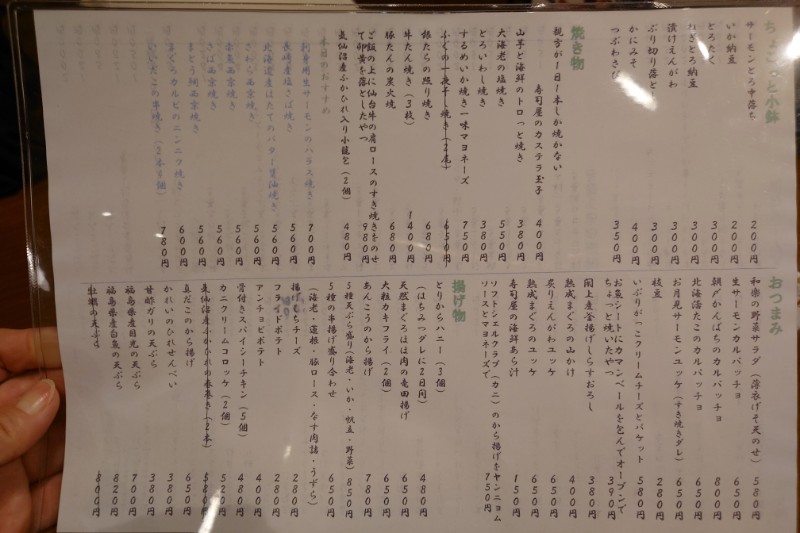 ちょこっと小鉢
サーモンとろ中落ち 200円
いか納豆 200円
とろたく 300円
ねぎとろ納豆 300円
漬けえんがわ 300円
ぶり切り落とし 300円
かにみそ 400円
つぶわさび 350円
焼き物
親方が1日1本しか焼かない
寿司屋のカステラ玉子 400円
山芋と海鮮のトロっと焼き 380円
大海老の塩焼き 550円
とろいわし焼き 380円
するめいか焼き一味マヨネーズ 750円
ふぐの一夜干し焼き(2尾) 650円
銀だらの照り焼き 680円
牛たん焼き(3枚) 1400円
豚たんの炭火焼 680円
ご飯の上に仙台牛の肩ロースのすき焼きをのせ
て卵黄を落としたやつ 980円
気仙沼産ふかひれ入り小籠包(2個) 480円
本日のおすすめ
刺身用生サーモンのハラス焼き 700円
長崎産塩さば焼き 560円
北海道産ほたてのバター醤油焼き 560円
さわら西京焼き 560円
赤魚西京焼き 560円
さば西京焼き 560円
まとう鯛西京焼き 560円
まぐろカルビのニンニク焼き 600円
いいだこの串焼き(2本4個) 780円
おつまみ
和楽の野菜サラダ(薄衣げそ天のせ) 580円
生サーモンカルパッチョ 650円
朝〆かんぱちのカルパッチョ 800円
北海道たこのカルパッチョ 650円
お月見サーモンユッケ(すき焼きダレ) 650円
枝豆 280円
いぶりがっこクリームチーズとバケット 580円
お魚シートにカマンベールを包んでオーブンで
ちょっと焼いたやつ 390円
閖上産釜揚げしらすおろし 380円
熟成まぐろの山かけ 400円
炙りえんがわユッケ 650円
熟成まぐろのユッケ 650円
寿司屋の海鮮あら汁 150円
ソフトシェルクラブ(カニ)のから揚げをヤンニョム
ソースとマヨネーズで 750円
揚げ物
とりからハニー(3個)
(はちみつダレに2日間) 480円
天然まぐろほほ肉の竜田揚げ 650円
大粒カキフライ(2個) 650円
あんこうのから揚げ 780円
5種天ぷら盛り(海老・いか・帆立・野菜) 850円
5種の串揚げ盛り合わせ 650円
(海老・蓮根・豚ロース・なす肉詰・うずら)
揚げもちチーズ 280円
フライドポテト 280円
アンチョビポテト 400円
骨付きスパイシーチキン(5個) 480円
カニクリームコロッケ(2個) 520円
気仙沼産ふかひれの春巻き(2本) 580円
真だこのから揚げ 650円
かれいのひれせんべい 380円
甘酢ガリの天ぷら 380円
福島県産目光の天ぷら 700円
福島県産白魚の天ぷら 820円
牡蠣の天ぷら 800円